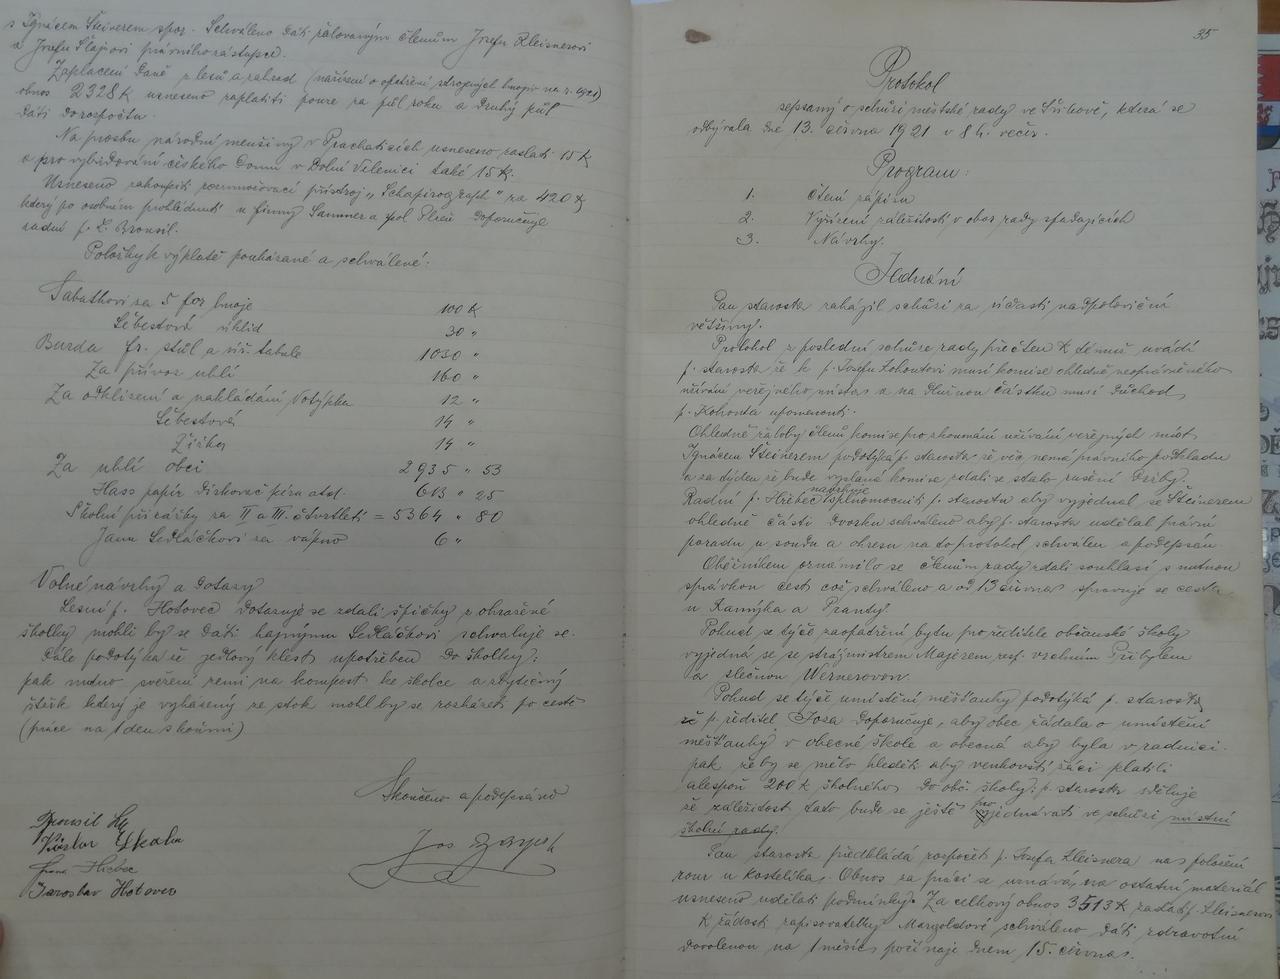 s Ignácem Šteinerem spor. Schváleno dáti žalovaným členům Josefu Kleisnerovi
a Josefu Šlajsovi právního zástupce.
Zaplacení daně z lesů a zahrad (nařízení o opatření strojených hnojiv na r. 1921)
obnos 2328 K usneseno zaplatiti pouze za půl roku a druhý půl
dáti do rozpočtu.
Na prosbu národní menšiny v Prachaticích usneseno zaslati 15 K
a pro vybudování českého domu v Dolní Vilenici také 15 K.
Usneseno zakoupiti rozmnožovací přístroj „Schapirograph" za 420 K
který po osobním prohlédnutí u firmy Sammer a spol Plzeň doporučuje
radní p. L. Brousil.
Položky k výplatě poukázané a schválené:
Sabathovi za 5 for hnoje 100 K
Šebestová úklid 30 "
Burda fr. stůl a úř. tabule 1030 "
Za přívoz uhlí 160 "
Za odklizení a nakládání Votýpka 12 "
Šebestová 14 "
Žižka 14 "
Za uhlí obci 2935 " 53
Hass papír dřskovac péra atd. 613 " 25
Školní přirážky za II a III. čtvrtletí = 5364 " 80
Janu Sedláčkovi za vápno 6 "
Volné návrhy a dotazy
Lesní p. Hotovec dotazuje se zdali špičky z ohražené
školky mohli by se dáti hajnýmu Sedláčkovi schvaluje se.
Dále podotýká že jedlový klest upotřeben do školky;
pak nutno svezení zemi na kompost ke školce a zbytečný
štěrk který je vyházený ze stok mohl by se rozházeti po cestě
(práce na 1 den s koňmi)
Skončeno a podepsáno
Brousil
Jos
Hřebec
Jaroslav Hotovec
35
Protokol
sepsaný o schůzi městské rady ve Sušici, která se
odbývala dne 13. června 1921 v 8 h. večer.
Program:
1. Čtení zápisu
2. Vyřízení záležitostí v obor rady spadajících
3. Návrhy.
Jednání
Pan starosta zahájil schůzi za účasti nadpoloviční
většiny.
Protokol z poslední schůze rady přečten K tomu uvádí
p. starosta že k p. Josefu Kohoutovi musí komise ohledně neoprávněného
užívání veřejného místa a na dlužnou částku musí důchod
p. Kohouta upomenouti.
Ohledně žaloby členů komise pro zkoumání užívání veřejných míst
Ignácem Šteinerem podotýká p. starosta že věc nemá právního podkladu
a za týden že bude vyslaná komise zdali se stalo rušení držby.
Radní p. Hřebec navrhuje zplnomocniti p. starostu aby vyjednal se Šteinerem
ohledně části dvorku schváleno aby p. starosta udělal právní
poradu u soudu a okresu na to protokol schválen a podepsán.
Oběžníkem oznámilo se členům rady zdali souhlasí s nutnou
správkou cest což schváleno a od 13 června spravuje se cesta
u Kamýka a Pranty.
Pokud se týče zaopatření bytu pro ředitele občanské školy
vyjedná se se strážmistrem Majerem resp. vrchním Přibylem
a slečnou Wernerovou.
Pokud se týče umístění měšťanky podotýká p. starosta
že p. ředitel Josa doporučuje, aby obec žádala o umístění
měšťanky v obecné škole a obecná aby byla v radnici.
pak že by se mělo hleděti aby venkovští žáci platili
alespoň 200 K školného do obč. školy; p. starosta sděluje
že záležitost tato bude se ještě projednávati ve schůzi místní
školní rady.
Pan starosta předkládá rozpočet p. Josefa Kleisnera na položení
rour u kostelíka. Obnos za práci se uznává, na ostatní materiál
usneseno udělati podmínky. Za celkový obnos 3513 K zadati p. Kleisnerovi
K žádosti zapisovatelky Margoldové schváleno dáti zdravotní
dovolenou na 1 měsíc počínaje dnem 15. června.